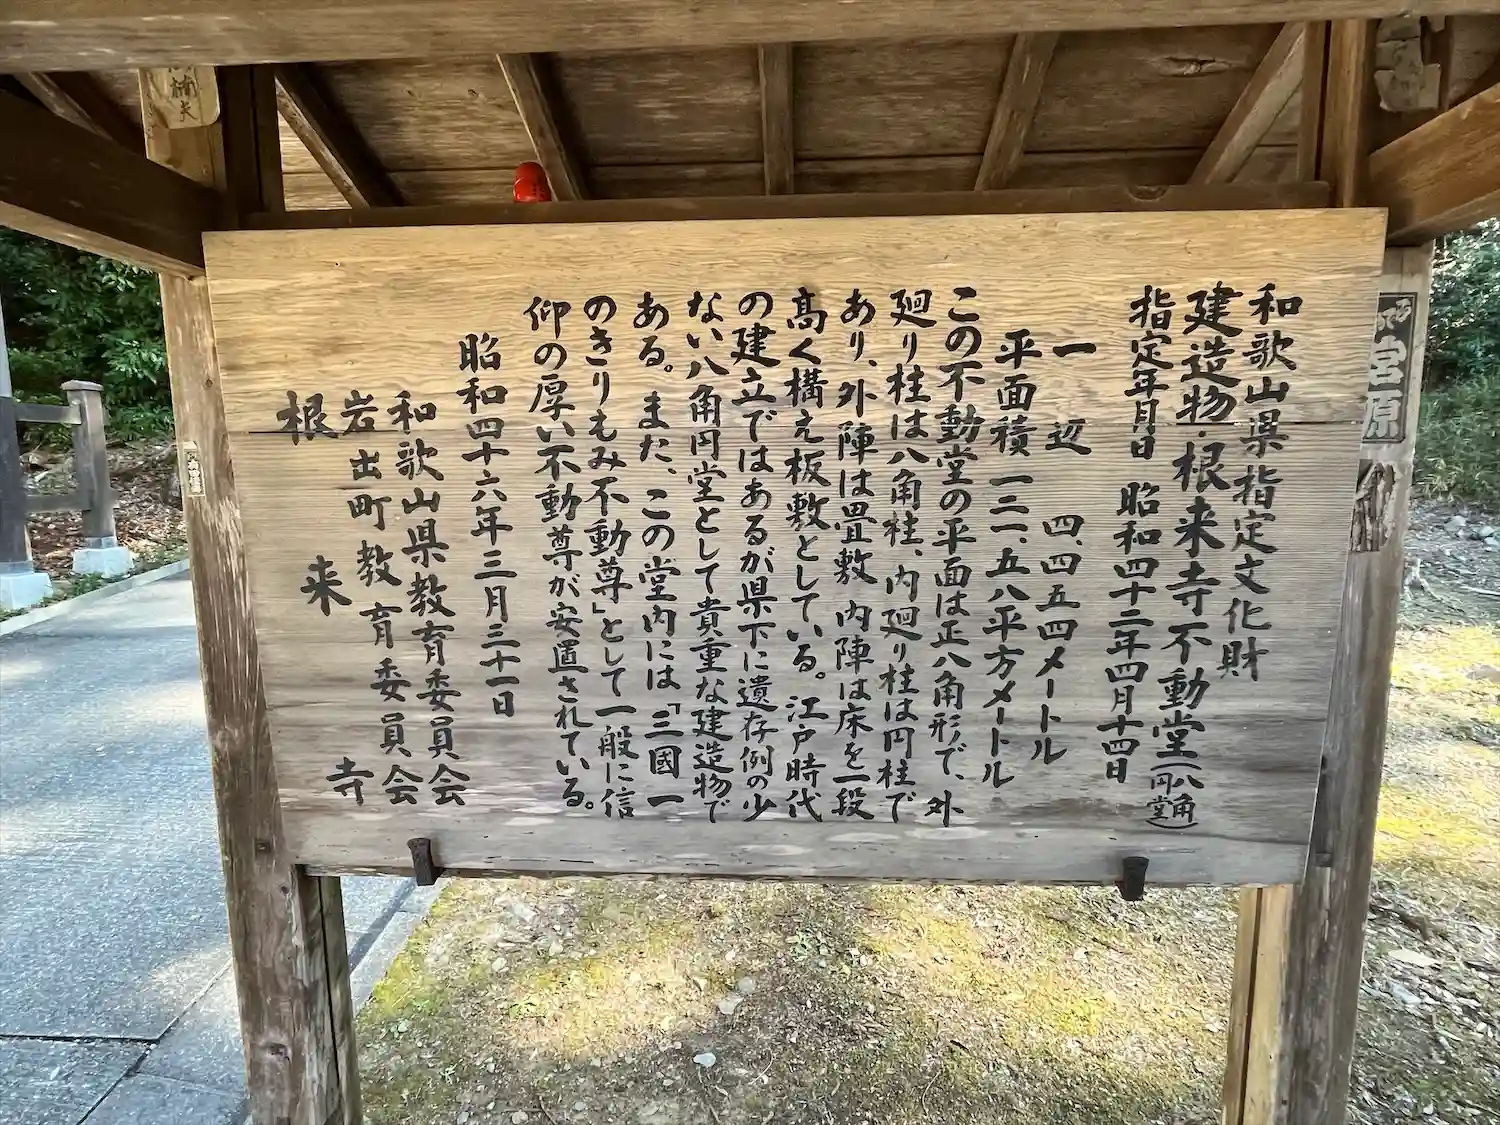 和歌山県指定文化財
建造物・根来寺不動堂(八角円堂)
指定年月日　昭和四十三年四月十四日
一辺　四、四五四メートル
平面積　一三一、五八平方メートル
この不動堂の平面は正八角形で、外
廻り柱は八角柱、内廻り柱は円柱で
あり、外陣は畳敷　内陣は床を一段
高く構え板敷としている。江戸時代
の建立ではあるが県下に遺存例の少
ない八角円堂として貴重な建造物で
ある。また、この堂内には「三國一
のきりもみ不動尊」として一般に信
仰の厚い不動尊が安置されている。
昭和四十六年三月三十一日
和歌山県教育委員会
岩出町教育委員会
根来寺
宮原
楠夫